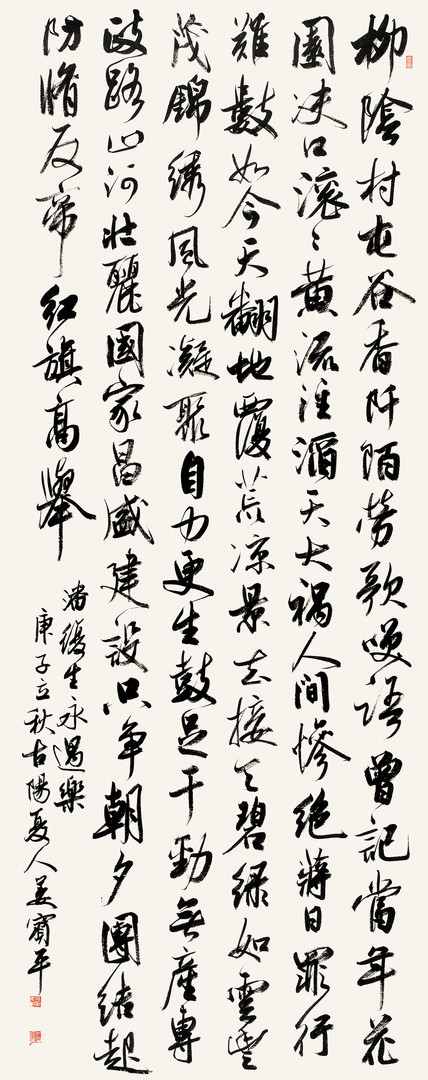 柳陰村屯谷香阡陌勞歌咲語曾記當年花
園决口滚々黄流注天大禍人間慘絶蔣日罪行
難數如今天翻地覆荒凉景去接天碧緑如雲豐
茂錦綉風光凝聚自力更生鼓足干勁無產專
政路山河壯麗國家昌盛建設只争朝夕團结起
防脩反帝紅旗高舉
潘復生永遇樂
庚子立秋古陽夏人姜寶平